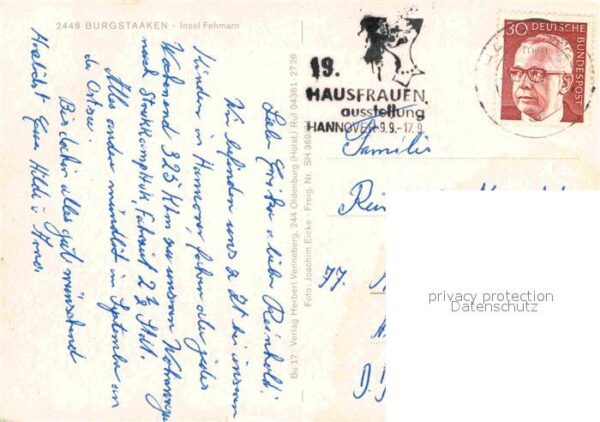 2448 BURGSTAAKEN - Insel Fehmarn
Liebe Grita u. lieber Reinhold!
Wir befinden uns z. Zt bei unseren
Kindern in Hannover, fahren aber jedes
Wochenend 325 Klm zu unserem Wohnwagen
nach Strukkamphuk, Fahrzeit 2½ Std.
Alles andere mündlich im September an
der Ostsee
Bis dahin alles gut wünschend
Herzlichst Eure Hilde u.
Be 17 - Verlag Herbert Venneberg, 244 Oldenburg (Holst.) Ruf 04361 - 2726
Foto: Joachim Eicke - Freig. Nr. SH 369
19.
HAUSFRAUEN
ausstellung
HANNOVER 9.9.-17.9.
30 DEUTSCHE
BUNDESPOST
Familie
privacy protection
Datenschutz